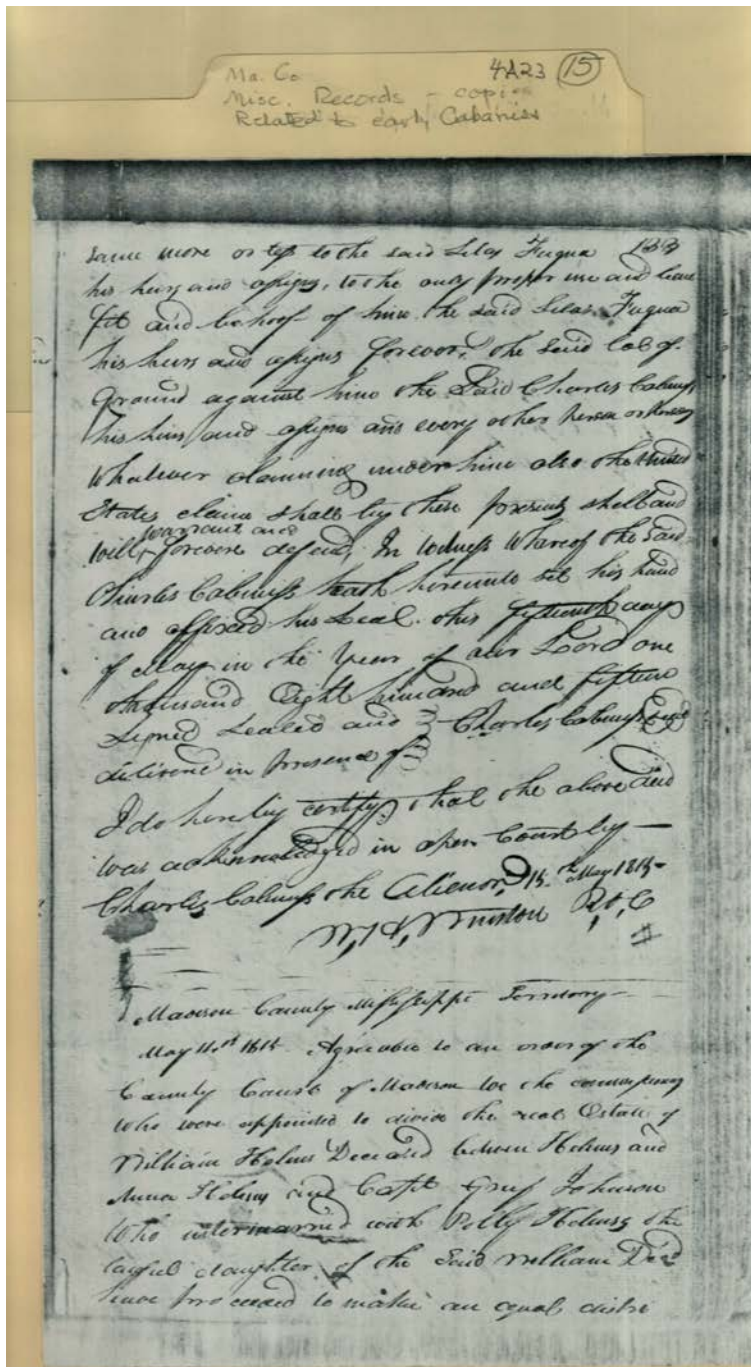 Ma. Co 4A23 15
Misc. Records - copies
Related to early Cabaniss
same more or less to the said Silas Fuqua
his heirs and assigns, to the only proper use and bene
fit and behoof of him the said Silas Fuqua
his heirs and assigns forever, the said lot of
Ground against him the Said Charles Cabiness
his heirs and assigns and every other Person or Persons
Whatever claiming under him also the United
States claim shall by these presents shall and
warrant and
will forever defend, In witness Whereof the Said
Charles Cabiness hath hereunto set his hand
and affixed his Seal this fifteenth day
of May in the Year of our Lord one
thousand Eight hundred and fifteen
Signed Sealed and Charles Cabiness Seal
delivered in presence of
I do hereby certify that the above deed
was acknowledged in open Court by
Charles Cabiness the Alienor, 15th May 1815
W, H, Winston
Madison County Mississippi Territory
May 1815 Agreeable to an order of the
County Court of Madison We the
who were appointed to divide the real Estate of
William Helms Deceased between Helms and
Anna Helms and Capt Johnson
Who intermarried with Polly Helms the
lawful daughter of the Said William Decd
have proceeded to make an equal distri